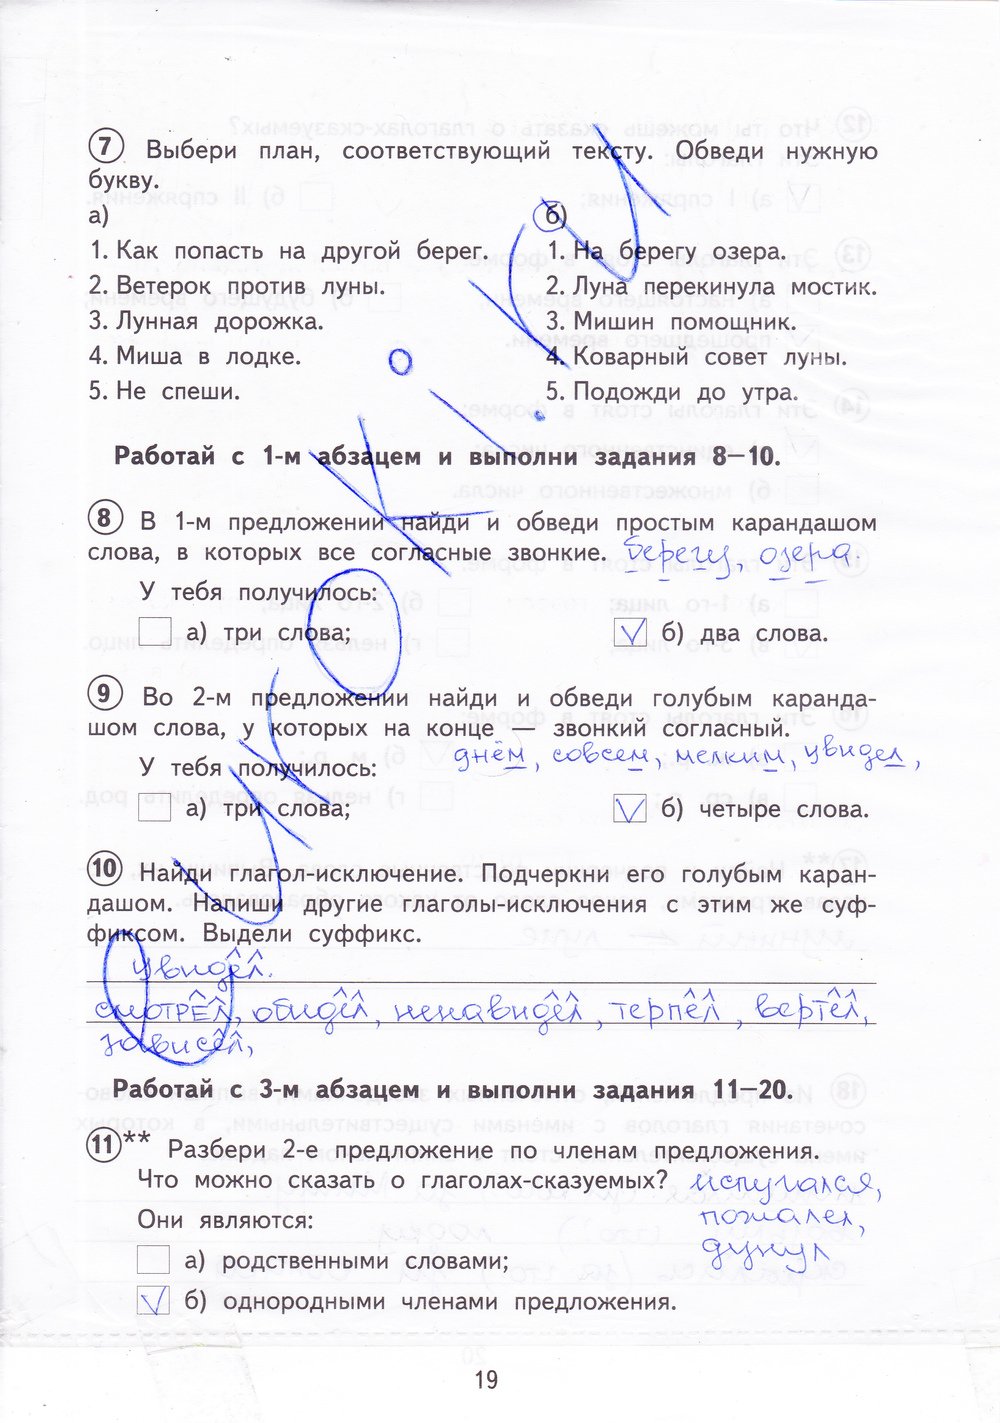 7 Выбери план, соответствующий тексту. Обведи нужную
букву.
а)
1. Как попасть на другой берег.
2. Ветерок против луны.
3. Лунная дорожка.
4. Миша в лодке.
5. Не спеши.
б)
1. На берегу озера.
2. Луна перекинула мостик.
3. Мишин помощник.
4. Коварный совет луны.
5. Подожди до утра.
Работай с 1-м абзацем и выполни задания 8—10.
8 В 1-м предложении найди и обведи простым карандашом
слова, в которых все согласные звонкие. берегу, озера.
У тебя получилось:
а) три слова;
б) два слова.
9 Во 2-м предложении найди и обведи голубым каранда-
шом слова, у которых на конце — звонкий согласный.
У тебя получилось: днём, совсем, мелким, увидел,
а) три слова;
б) четыре слова.
10 Найди глагол-исключение. Подчеркни его голубым каран-
дашом. Напиши другие глаголы-исключения с этим же суф-
фиксом. Выдели суффикс.
увидел.
смотрЕл, обидел, ненавидел, терпел, вертел,
зависел,
Работай с 3-м абзацем и выполни задания 11—20.
11** Разбери 2-е предложение по членам предложения.
Что можно сказать о глаголах-сказуемых? испугался,
Они являются: пожалел,
дунул
а) родственными словами;
б) однородными членами предложения.
19